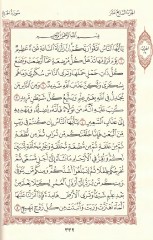 الجزء السابع عشر
سورة الحج
بِسْمِ ٱللَّهِ ٱلرَّحْمَٰنِ ٱلرَّحِيمِ
يَٰٓأَيُّهَا ٱلنَّاسُ ٱتَّقُوا۟ رَبَّكُمْ إِنَّ زَلْزَلَةَ ٱلسَّاعَةِ شَىْءٌ عَظِيمٌ ١
يَوْمَ تَرَوْنَهَا تَذْهَلُ كُلُّ مُرْضِعَةٍ عَمَّآ أَرْضَعَتْ وَتَضَعُ
كُلُّ ذَاتِ حَمْلٍ حَمْلَهَا وَتَرَى ٱلنَّاسَ سُكَٰرَىٰ وَمَا هُم
بِسُكَٰرَىٰ وَلَٰكِنَّ عَذَابَ ٱللَّهِ شَدِيدٌ ٢ وَمِنَ ٱلنَّاسِ مَن
يُجَٰدِلُ فِى ٱللَّهِ بِغَيْرِ عِلْمٍ وَيَتَّبِعُ كُلَّ شَيْطَٰنٍ مَّرِيدٍ ٣
كُتِبَ عَلَيْهِ أَنَّهُۥ مَن تَوَلَّاهُ فَأَنَّهُۥ يُضِلُّهُۥ وَيَهْدِيهِ إِلَىٰ عَذَابِ
ٱلسَّعِيرِ ٤ يَٰٓأَيُّهَا ٱلنَّاسُ إِن كُنتُمْ فِى رَيْبٍ مِّنَ ٱلْبَعْثِ فَإِنَّا
خَلَقْنَٰكُم مِّن تُرَابٍ ثُمَّ مِن نُّطْفَةٍ ثُمَّ مِنْ عَلَقَةٍ ثُمَّ مِن مُّضْغَةٍ
مُّخَلَّقَةٍ وَغَيْرِ مُخَلَّقَةٍ لِّنُبَيِّنَ لَكُمْ وَنُقِرُّ فِى ٱلْأَرْحَامِ مَا نَشَآءُ
إِلَىٰٓ أَجَلٍ مُّسَمًّى ثُمَّ نُخْرِجُكُمْ طِفْلًا ثُمَّ لِتَبْلُغُوٓا۟ أَشُدَّكُمْ
وَمِنكُم مَّن يُتَوَفَّىٰ وَمِنكُم مَّن يُرَدُّ إِلَىٰٓ أَرْذَلِ ٱلْعُمُرِ لِكَيْلَا
يَعْلَمَ مِنۢ بَعْدِ عِلْمٍ شَيْـًٔا وَتَرَى ٱلْأَرْضَ هَامِدَةً فَإِذَآ
أَنزَلْنَا عَلَيْهَا ٱلْمَآءَ ٱهْتَزَّتْ وَرَبَتْ وَأَنۢبَتَتْ مِن كُلِّ زَوْجٍۭ بَهِيجٍ ٥
٣٣٢